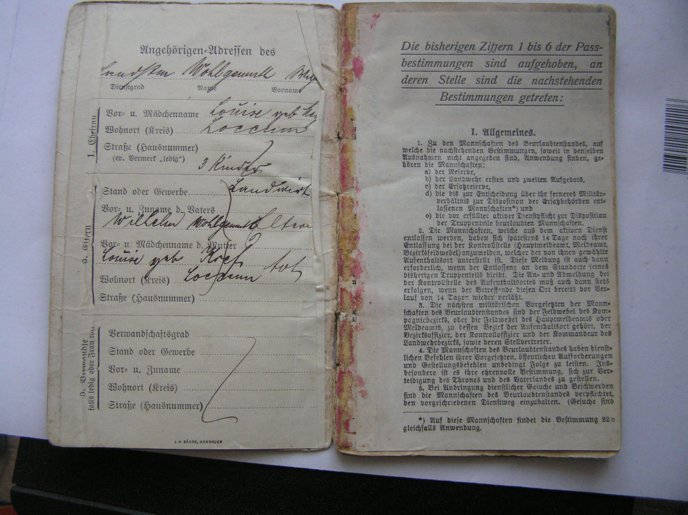 Angehörigen-Adressen des
Landstm Wohlgemuth
Dienstgrad Name Vorname
1. Ehefrau
Vor- u. Mädchenname Louise geb
Wohnort (Kreis) Loccum
Straße (Hausnummer)
(ev. Vermerk „ledig“) 3 Kinder
2. Eltern
Stand oder Gewerbe Landwirt
Vor- u. Zuname d. Vaters
Wilhelm Wohlgemuth Eltern
Vor- u. Mädchenname d. Mutter
Louise geb tot
Wohnort (Kreis) Loccum
Straße (Hausnummer)
3. Verwandte
falls ledig oder Frau tot.
Verwandschaftsgrad
Stand oder Gewerbe
Vor- u. Zuname
Wohnort (Kreis)
Straße (Hausnummer)
HANNOVER
Die bisherigen Ziffern 1 bis 6 der Pass-
bestimmungen sind aufgehoben, an
deren Stelle sind die nachstehenden
Bestimmungen getreten:
I. Allgemeines.
1. Zu den Mannschaften des Beurlaubtenstandes, auf
welche die nachstehenden Bestimmungen, soweit in denselben
Ausnahmen nicht angegeben sind, Anwendung finden, ge-
hören die Mannschaften:
a) der Reserve,
b) der Landwehr ersten und zweiten Aufgebots,
c) der Ersatzreserve,
d) die bis zur Entscheidung über ihr ferneres Militär-
verhältnis zur Disposition der Ersatzbehörden ent-
lassenen Mannschaften*) und
e) die vor erfüllter aktiver Dienstpflicht zur Disposition
der Truppenteile beurlaubten Mannschaften.
2. Die Mannschaften, welche aus dem aktiven Dienst
entlassen werden, haben sich spätestens 14 Tage nach ihrer
Entlassung bei der Kontrollstelle (Hauptmeldeamt, Meldeamt,
Bezirksfeldwebel) anzumelden, welcher der von ihnen gewählte
Aufenthaltsort unterstellt ist. Diese Meldung ist auch dann
erforderlich, wenn der Entlassene am Standorte seines
bisherigen Truppenteils bleibt. Die An- und Abmeldung bei
der Kontrollstelle des Aufenthaltsortes muß auch dann hier
erfolgen, wenn der Betreffende diesen Ort bereits vor Ver-
lauf von 14 Tagen wieder verläßt.
3. Die nächsten militärischen Vorgesetzten der Mann-
schaften des Beurlaubtenstandes sind der Feldwebel des Kom-
pagniebezirks, oder die Feldwebel des Hauptmeldeamts oder
Meldeamts, zu dessen Bezirk der Aufenthaltsort gehört, der
Bezirksoffizier, der Kontrolloffizier und der Kommandeur des
Landwehrbezirks, sowie deren Stellvertreter.
4. Die Mannschaften des Beurlaubtenstandes haben dienst-
lichen Befehlen ihrer Vorgesetzten, öffentlichen Aufforderungen
und Gestellungsbefehlen unbedingt Folge zu leisten. Ins-
besondere ist es ihre ehrenvolle Bestimmung, sich zur Ver-
teidigung des Thrones und des Vaterlandes zu gestellen.
5. Bei Anbringung dienstlicher Gesuche und Beschwerden
sind die Mannschaften des Beurlaubtenstandes verpflichtet,
den vorgeschriebenen Dienstweg einzuhalten. (Gesuche sind
*) Auf diese Mannschaften findet die Bestimmung 22e
gleichfalls Anwendung.